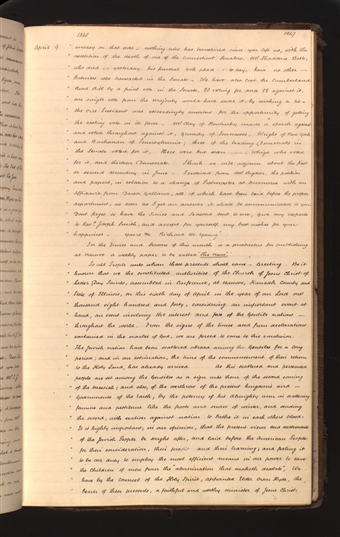 1840
1267
April 9
money on that score - nothing else has transpired since you left us, with the
exception of the death of one of the Connecticut Senators, Mr Thaddeus Betts,
who died on yesterday, his funeral took place to-day; have no other
business was transacted in the Senate. We have also lost the Cumberland
Road Bill by a final vote in the Senate, 20 voting for and 22 against it,
one single vote from the majority would have saved it by making a tie
the vice President was exceedingly anxious for the opportunity of getting
the casting vote in its favor. Mr Clay of Kentucky made a speech against
and voted throughout against it, Grundy of Tennessee, Wright of New York
and Buchanan of Pennsylvania, three of the leading Democrats in
the Senate voted for it, there were but seven Whigs who voted
for it, and thirteen Democrats. I think we will adjourn about the first
or second Monday in June. I received from Mr Rigdon, the petition
and papers, in relation to a change of Postmaster at Commerce with an
affidavit from
department. as soon as I get an answer, it shall be communicated to you
Dont forget to have the Times and Seasons sent to me, give my respects
to Revd. Joseph Smith, and accept for yourself my best wishes for your
happiness. Yours &c Richard M. Young."
In the Times and Seasons of this month is a prospectus for publishing
at Nauvoo a weekly paper to be called The News.
"To all People unto whom these presents shall come, Greeting - Be it
known that we the constituted authorities of the Church of Jesus Christ of
Latter Day Saints, assembled in Conference, at Nauvoo, Hancock County and
State of Illinois, on this sixth day of April in the year of our Lord one
thousand eight hundred and forty, considering an important event at
hand, an event involving the interest and fate of the Gentile nations
throughout the world. From the signs of the times and from declarations
contained in the oracles of God, we are forced to come to this conclusion.
The Jewish nation have been scattered abroad among the Gentiles for a long
period; and in our estimation, the time of the commencement of their return
to the Holy Land, has already arrived. As this scattered and persecuted
people are set among the Gentiles as a sign unto them of the second coming
of the Messiah; and also, of the overthrow of the present kingdoms and
Governments of the earth, by the potency of his Almighty arm in scattering
famine and pestilence like the frosts and snows of winter, and sending
the sword, with nation against nation to bathe it in each others blood;
It is highly important, in our opinion, that the present views and movements
of the Jewish People be sought after, and laid before the American People
for their consideration, their profit and their learning; and feeling it
to be our duty to employ the most efficient means in our power to save
the children of men from the "abomination that maketh desolate," We
have by the counsel of the Holy Spirit, appointed Elder Orson Hyde, the
bearer of these presents, a faithful and worthy minister of Jesus Christ